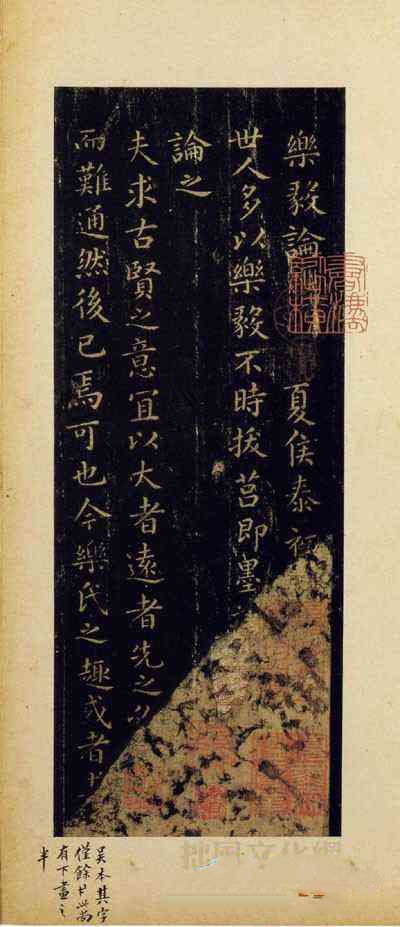 樂毅論 夏侯泰
世人多以樂毅不時拔莒即墨
論之
夫求古賢之意宜以大者遠者先之
而難通然後已焉可也今樂氏之趣或者
吳本其字
僅餘廿此尚
有下畫之
半
拙風文化網